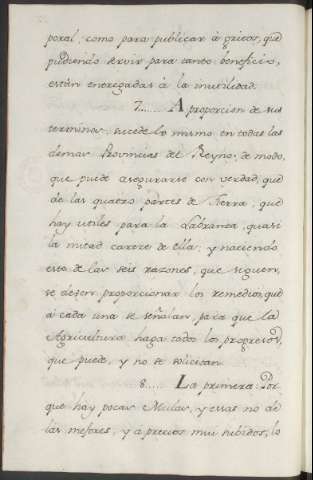 poral; como para publicar à gritos, que
pudiendo servir para tanto beneficio,
estàn entregadas à la inutilidad.
7...... A proporcion de sus
terminos, sucede lo mismo en todas las
demas Provincias del Reyno; de modo,
que puede asegurarse con verdad, que
de las quatro partes de Tierra, que
hay utiles para la Labranza, quasi
la mitad carece de ella; y naciendo
esto de las seis razones, que siguen,
se deven proporcionar los remedios, que
à cada una se señalan, para que la
Agricultura haga todos los progresos,
que puede, y no se solicitan.
8..... La primera: Por-
que hay pocas Mulas, y essas no de
las mejores, y a precios mui subidos, lo